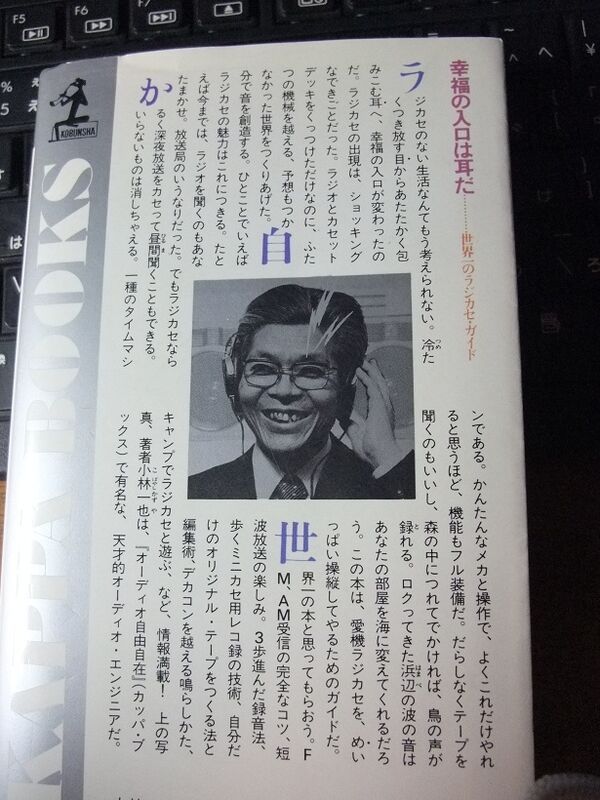 KOBUNSHA
KAPPA BOOKS
幸福の入口は耳だ………世界一のラジカセ・ガイド
ラジカセのない生活なんてもう考えられない。冷た
くつき放す目からあたたかく包
みこむ耳へ、幸福の入口が変わったの
だ。ラジカセの出現は、ショッキング
なできごとだった。ラジオとカセット
デッキをくっつけただけなのに、ふた
つの機械を越える、予想もつか
なかった世界をつくりあげた。
自分で音を創造する。ひとことでいえば
ラジカセの魅力はこれにつきる。たと
えば今までは、ラジオを聞くのもあな
たまかせ。放送局のいうなりだった。でもラジカセなら
かるく深夜放送をカセって昼間聞くこともできる。
いらないものは消しちゃえる。一種のタイムマシ
ンである。かんたんなメカと操作で、よくこれだけやれ
ると思うほど、機能もフル装備だ。だらしなくテープを
聞くのもいいし、森の中につれてでかければ、鳥の声が
録れる。ロクってきた浜辺の波の音は
あなたの部屋を海に変えてくれるだろ
う。この本は、愛機ラジカセを、めい
っぱい操縦してやるためのガイドだ。
世界一の本と思ってもらおう。F
M、AM受信の完全なコツ、短
波放送の楽しみ。3歩進んだ録音法、
歩くミニカセ用レコ録の技術、自分だ
けのオリジナル・テープをつくる法と
編集術、デカコンを越える鳴らしかた、
キャンプでラジカセと遊ぶ、など、情報満載! 上の写
真、著者小林一也は、『オーディオ自由自在』(カッパ・ブ
ックス)で有名な、天才的オーディオ・エンジニアだ。
F5
F6
F7
F8